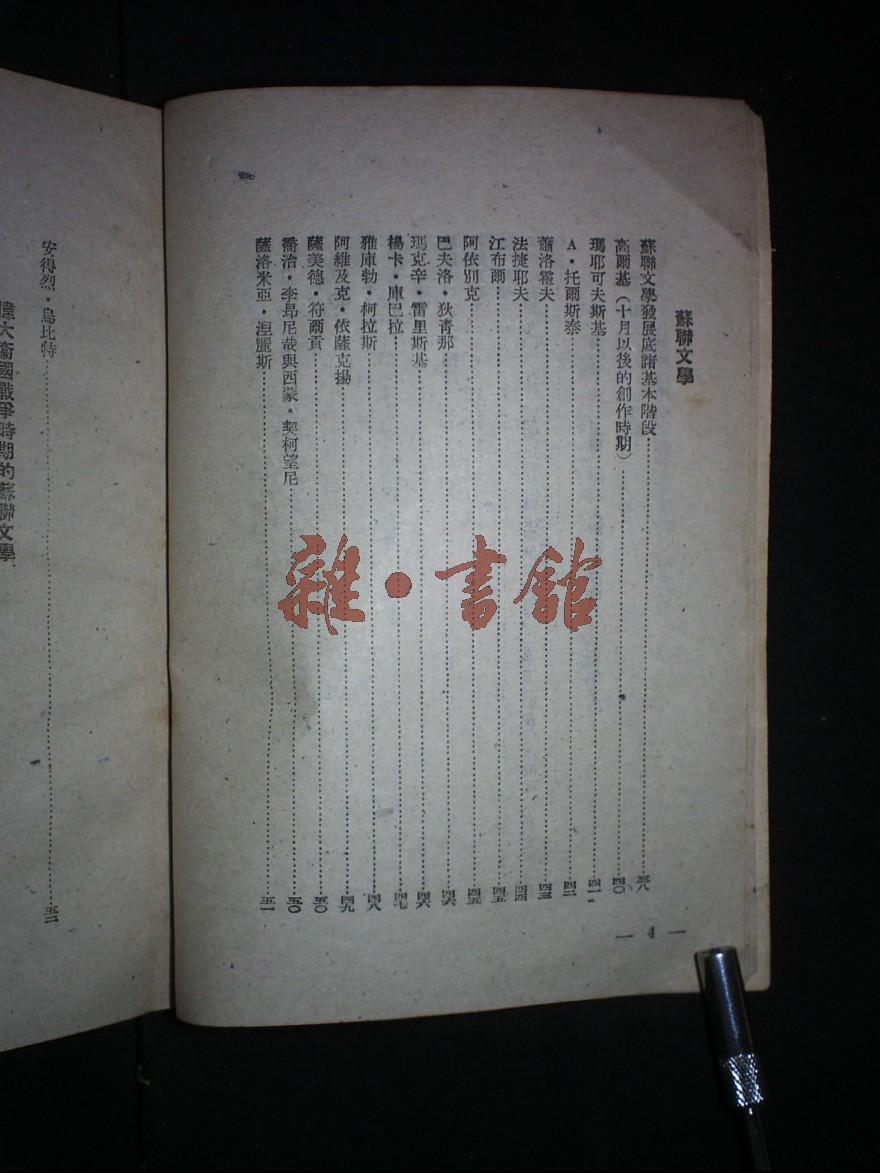 蘇聯文學
蘇聯文學發展底諸基本階段……三八
高爾基（十月以後的創作時期）……四〇
瑪耶可夫斯基……四一
A・托爾斯泰……四二
蕭洛霍夫……四三
法捷耶夫……四四
江布爾……四五
阿依別克……四五
巴夫洛・狄青那……四六
瑪克辛・雷里斯基……四六
楊卡・庫巴拉……四七
雅庫勃・柯拉斯……四八
阿維及克・依薩克揚……四九
薩美德・符爾貢……五〇
喬治・李昻尼哉與西蒙・契柯望尼……五〇
薩洛米亞・湼麗斯……五一
— 4 —
安得烈・烏比特……五二
偉大衞國戰爭時期的蘇聯文學
雜・書館